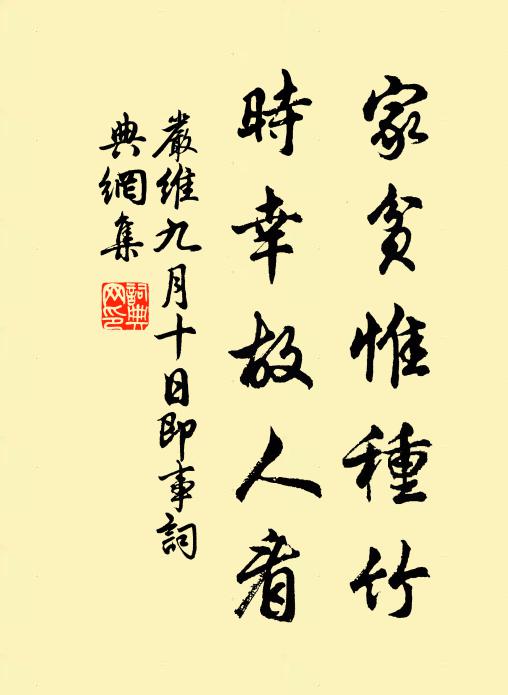 家貧惟種竹
時幸故人看
嚴維九月十日即事詞
典網集
詞典网印